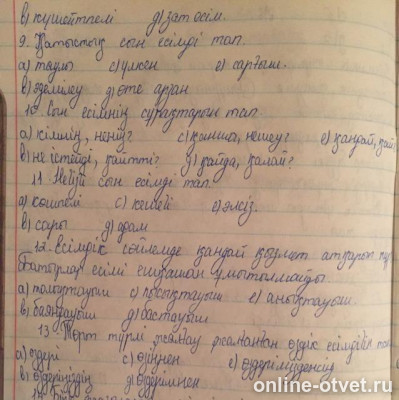 в) күшейтпелі д) зат есім.
9. Қатыстық сын есімді тап.
а) таулы с) үлкен е) сарғыш.
в) әдемілеу д) өте арзан
10. Сын есімнің сұрақтарын тап
а) кімнің, ненің? с) қанша, нешеу? е) қандай, қай
в) не істейді, қайтті? д) қайда, қалай?
11. Негізгі сын есімді тап.
а) көшпелі с) кешегі е) әлсіз.
в) сары д) адам
12. Есімдік сөйлемде қандай қызмет атқарып тұр
Батырлар есімі ешқашан ұмытылмайды.
а) толықтауыш с) пысықтауыш е) анықтауыш.
в) баяндауыш д) бастауыш
13. Төрт түрлі жалғау жалғанған өздік есімдікті тап
а) өздері с) өзіңнен е) өздеріміздеңсің
в) өздеріңіздің д) өздерімнен
online-otvet.ru